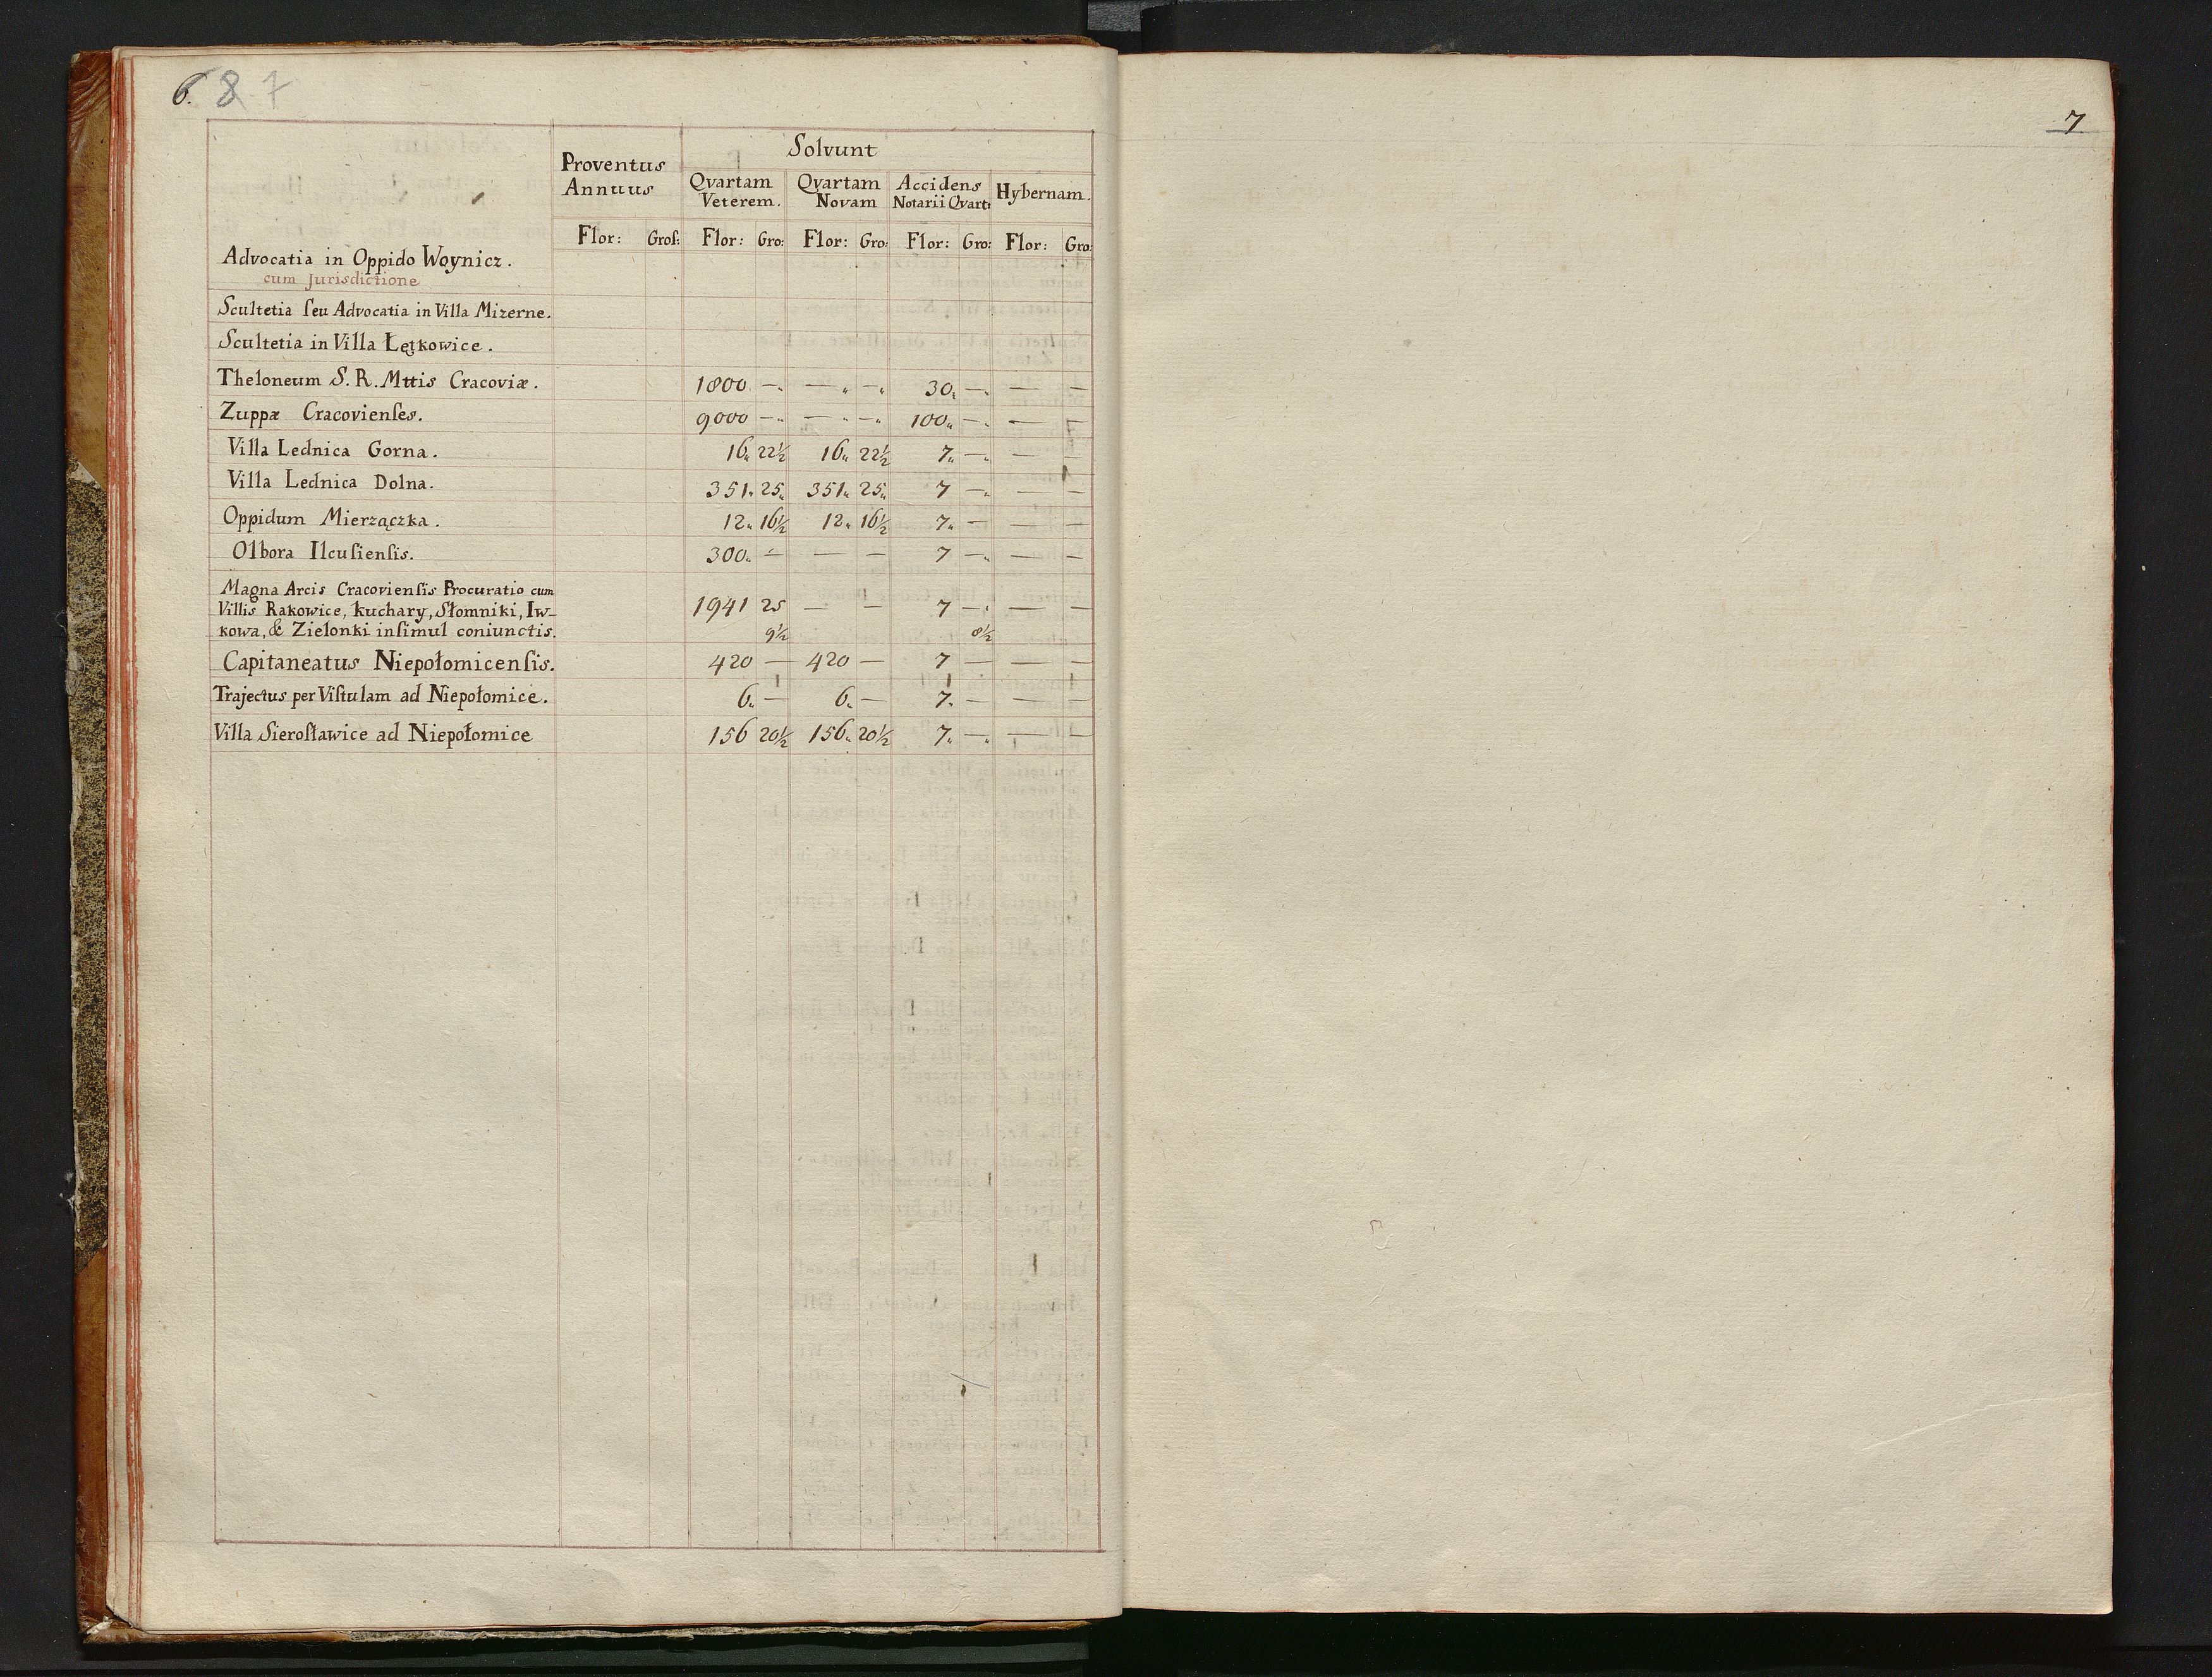 6. 8 7
Solvunt
Proventus Annuus
Qvartam Veterem.
Qvartam Novam
Accidens Notarii Qvart:
Hybernam.
Flor: Groſ: Flor: Gro: Flor: Gro: Flor: Gro: Flor: Gro:
Advocatia in Oppido Woynicz.
cum Jurisdictione
Scultetia ſeu Advocatia in Villa Mizerne.
Scultetia in Villa Łętkowice.
Theloneum S. R. Mttis Cracoviæ. 1800 — — — 30 — — —
Zuppæ Cracovienſes. 9000 — — — 100 — — —
Villa Lednica Gorna. 16 22½ 16 22½ 7 — — —
Villa Lednica Dolna. 351 25 351 25 7 — — —
Oppidum Mierzączka. 12 16½ 12 16½ 7 — — —
Olbora Ilcuſienſis. 300 — — — 7 — — —
Magna Arcis Cracovienſis Procuratio cum
Villis Rakowice, Kuchary, Słomniki, Iw- 1941 25 — — 7 — — —
kowa, & Zielonki inſimul coniunctis. 9½ 8½
Capitaneatus Niepołomicenſis. 420 — 420 — 7 — — —
Trajectus per Viſtulam ad Niepołomice. 6 — 6 — 7 — — —
Villa Sieroſławice ad Niepołomice 156 20½ 156 20½ 7 — — —
7